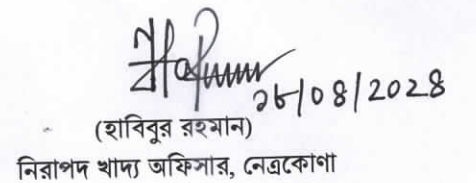 /০৪/২০২৪
(হাবিবুর রহমান)
নিরাপদ খাদ্য অফিসার, নেত্রকোণা